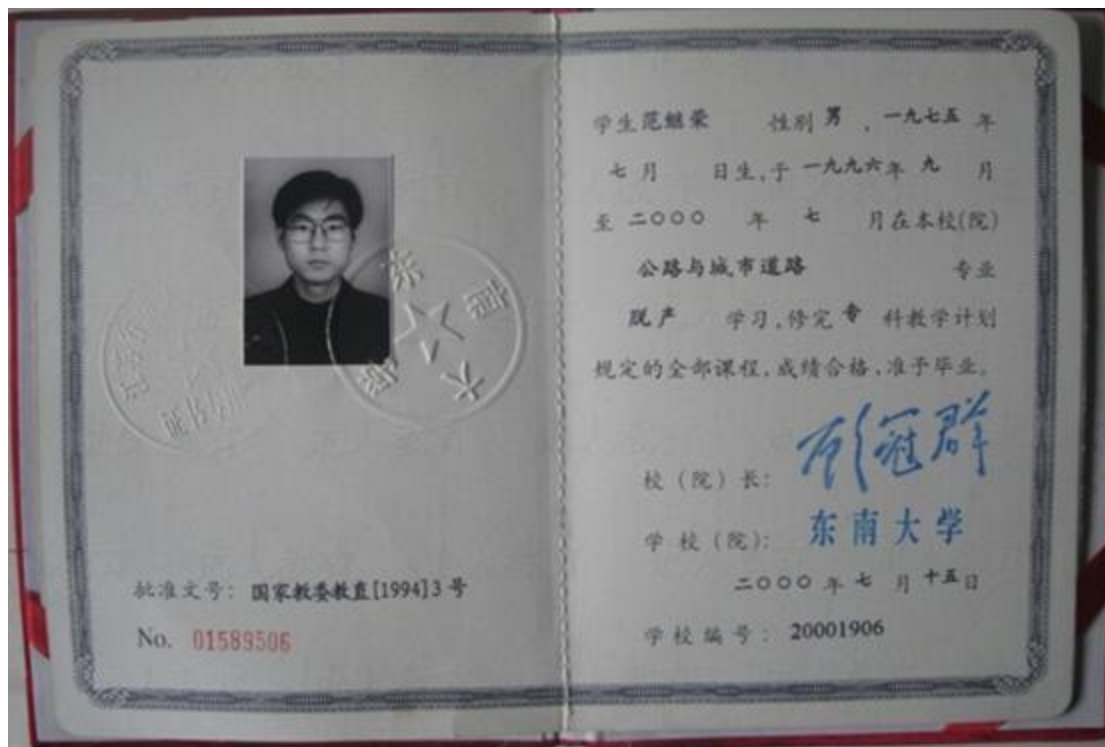 批准文号：国家教委教直[1994]3号
No. 01589506
学生范继荣 性别男，一九七五年
七月 日生,于一九九六年九月
至二〇〇〇年七月在本校(院)
公路与城市道路 专业
脱产 学习,修完专科教学计划
规定的全部课程,成绩合格,准予毕业。
校（院）长：顾冠群
学校（院）：东南大学
二〇〇〇年七月十五日
学校编号：20001906